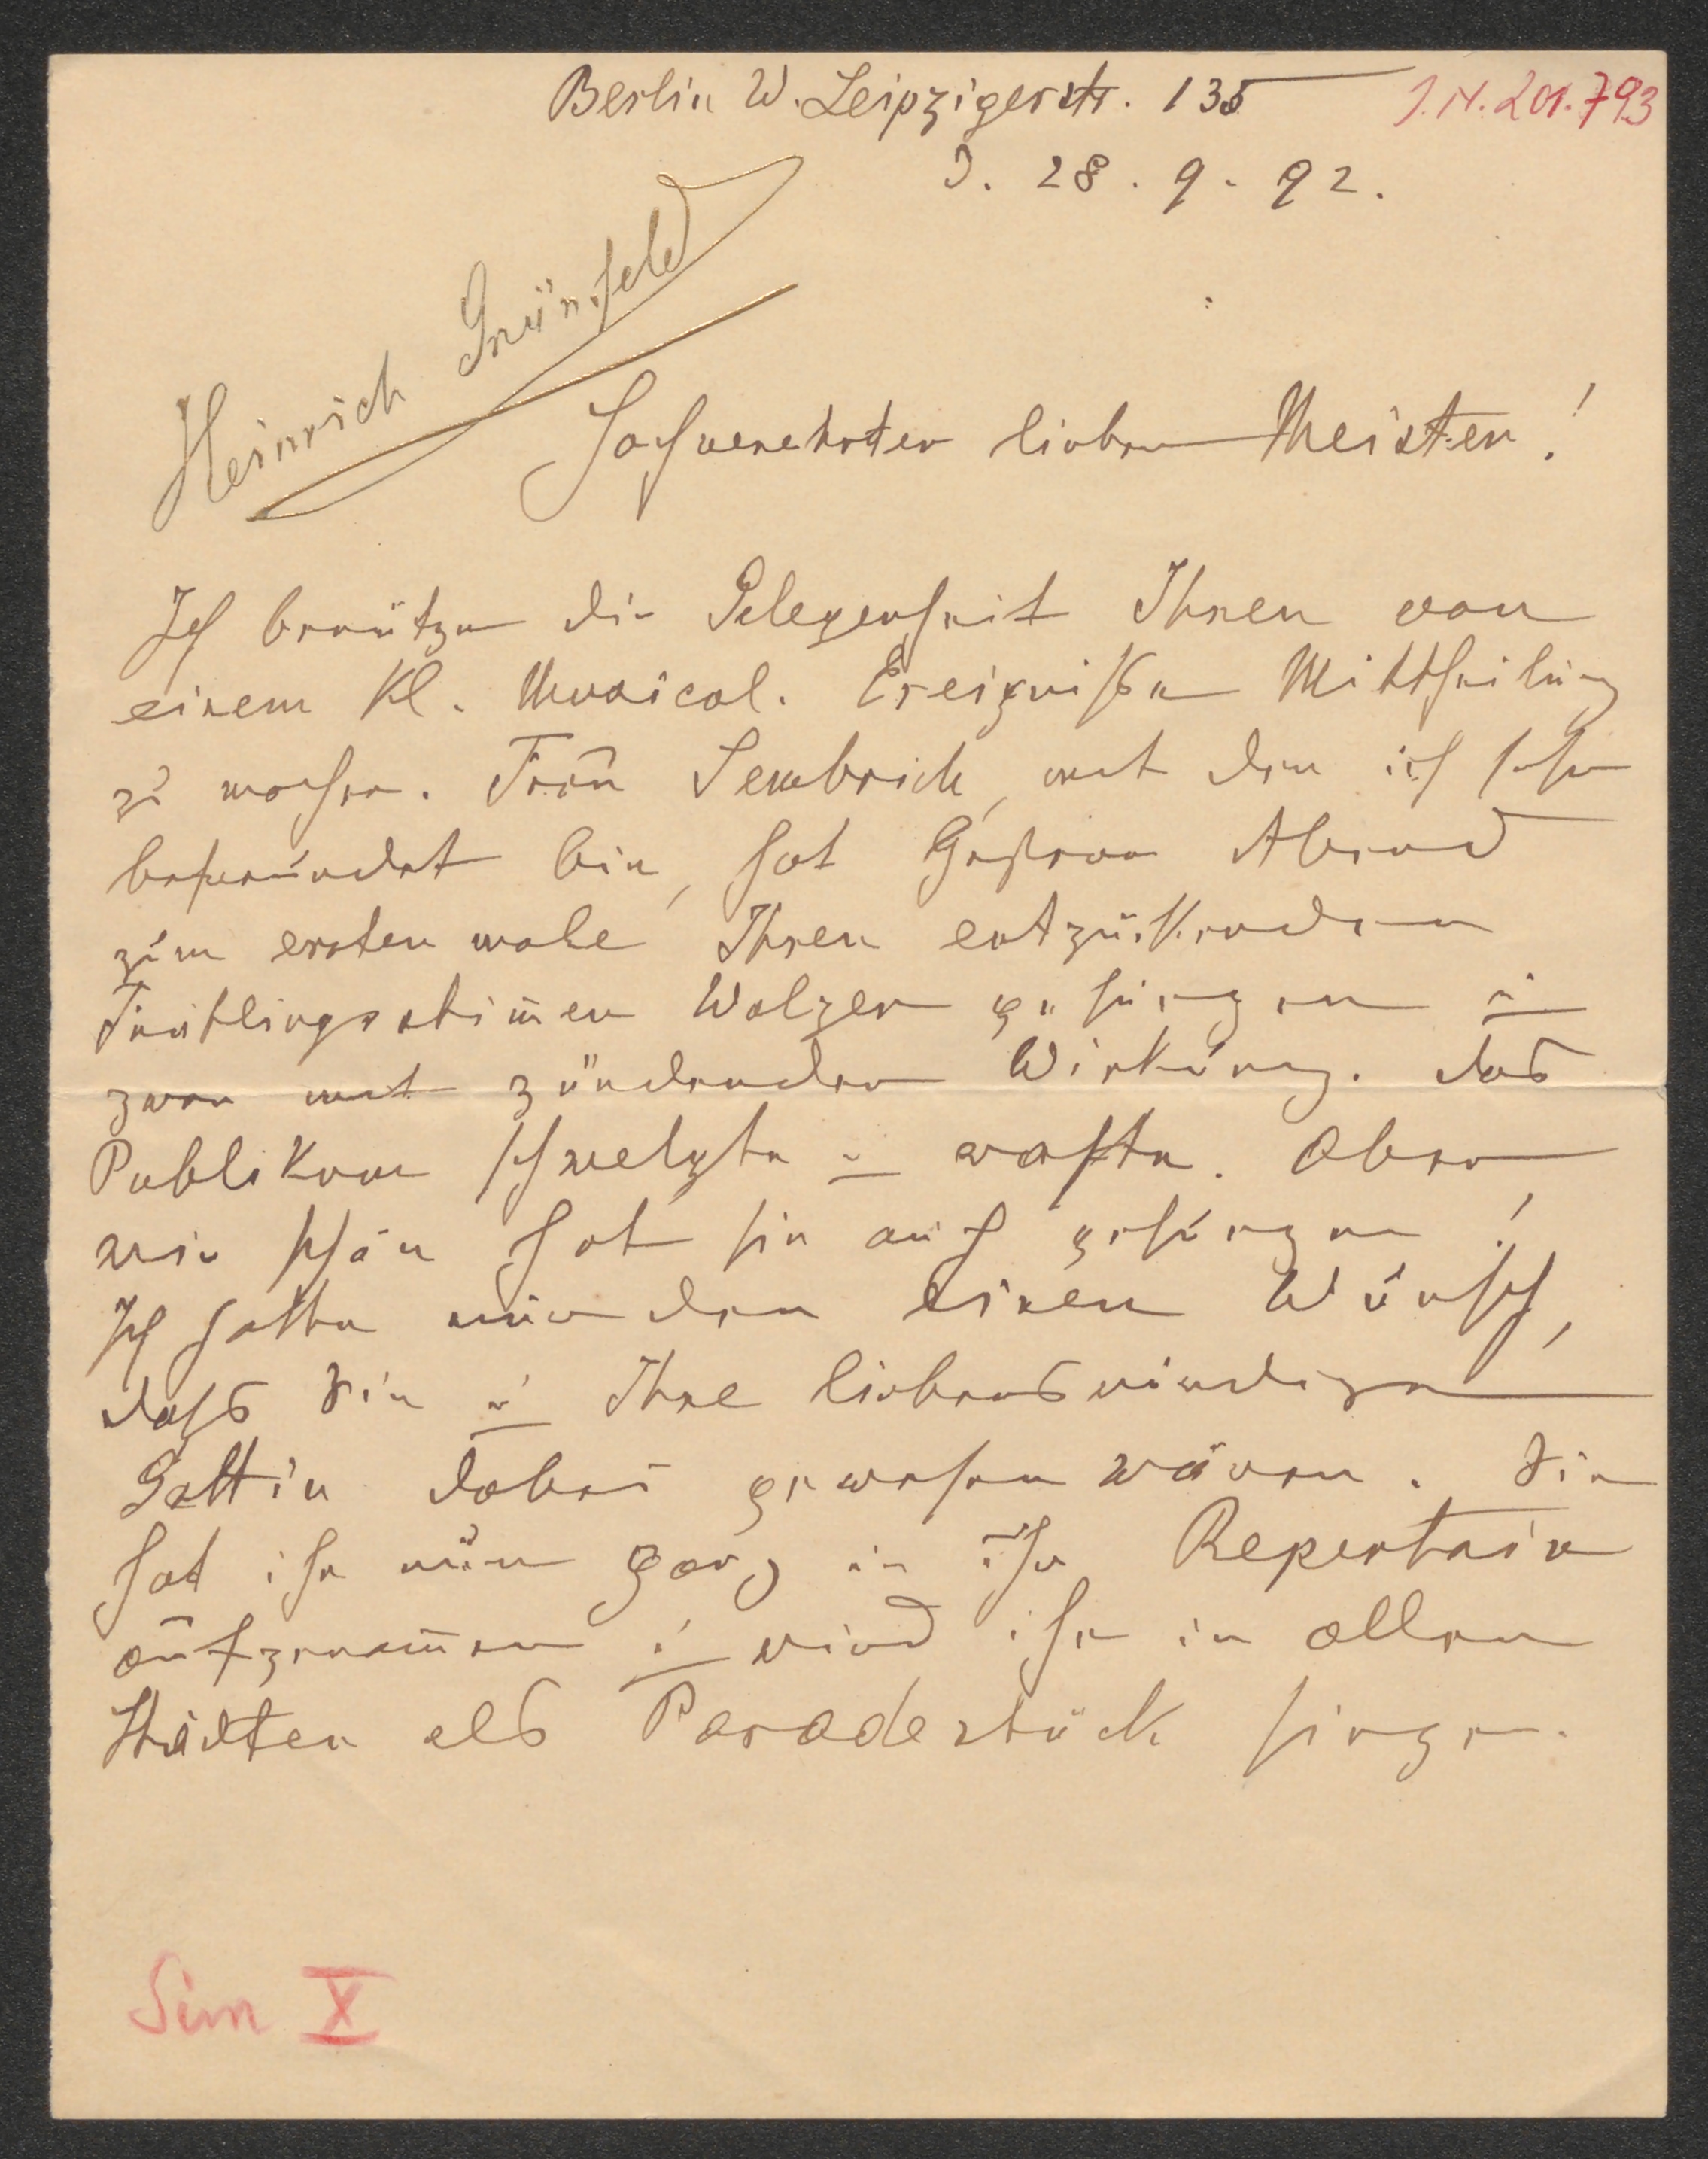 Berlin W. Leipzigerstr. 135
J. N. 201.793
D. 28. 9. 92.
Heinrich Grünfeld
Hochverehrter lieber Meister!
Ich benütze die Gelegenheit Ihnen von
einem kl. Musical. Ereigniße Mittheilung
zu machen. Frau Sembrich, mit der ich sehr
befreundet bin, hat Gestern Abend
zum ersten male Ihren entzückenden
Frühlingsstim̄en Walzer gesungen u
zwar mit zündender Wirkung. Das
Publikum schwelgte u raste. Aber
wie schön hat sie auch gesungen!
Ich hatte nur den einen Wunsch,
dass Sie u Ihre liebenswürdige
Gattin dabei gewesen wären. Sie
hat ihn nun ganz in ihr Repertoir
aufgenom̄en u wird ihn in allen
Städten als Paradestück singen.
Sim X